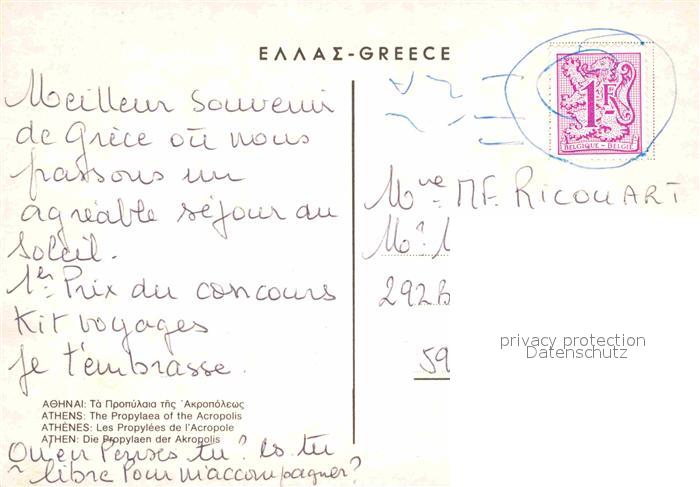 ΕΛΛΑΣ-GREECE
1F
BELGIQUE-BELGIË
Meilleur souvenir
de Grèce où nous
passons un
agréable séjour au
soleil.
1er Prix du concours
Kit voyages
je t'embrasse.
ΑΘΗΝΑΙ: Τὰ Προπύλαια τῆς Ἀκροπόλεως
ATHENS: The Propylaea of the Acropolis
ATHÈNES: Les Propylées de l'Acropole
ATHEN: Die Propylaen der Akropolis
Qu'en Penses tu? es tu
libre Pour m'accompagner?
Mme MF. RICOUART
292B
59
privacy protection
Datenschutz